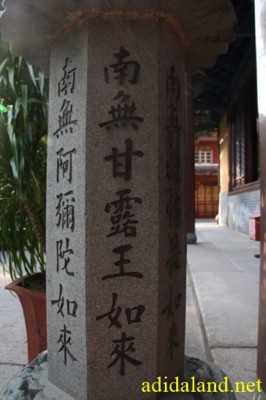 南無甘露王如來
南無阿彌陀如來
adidaland.net